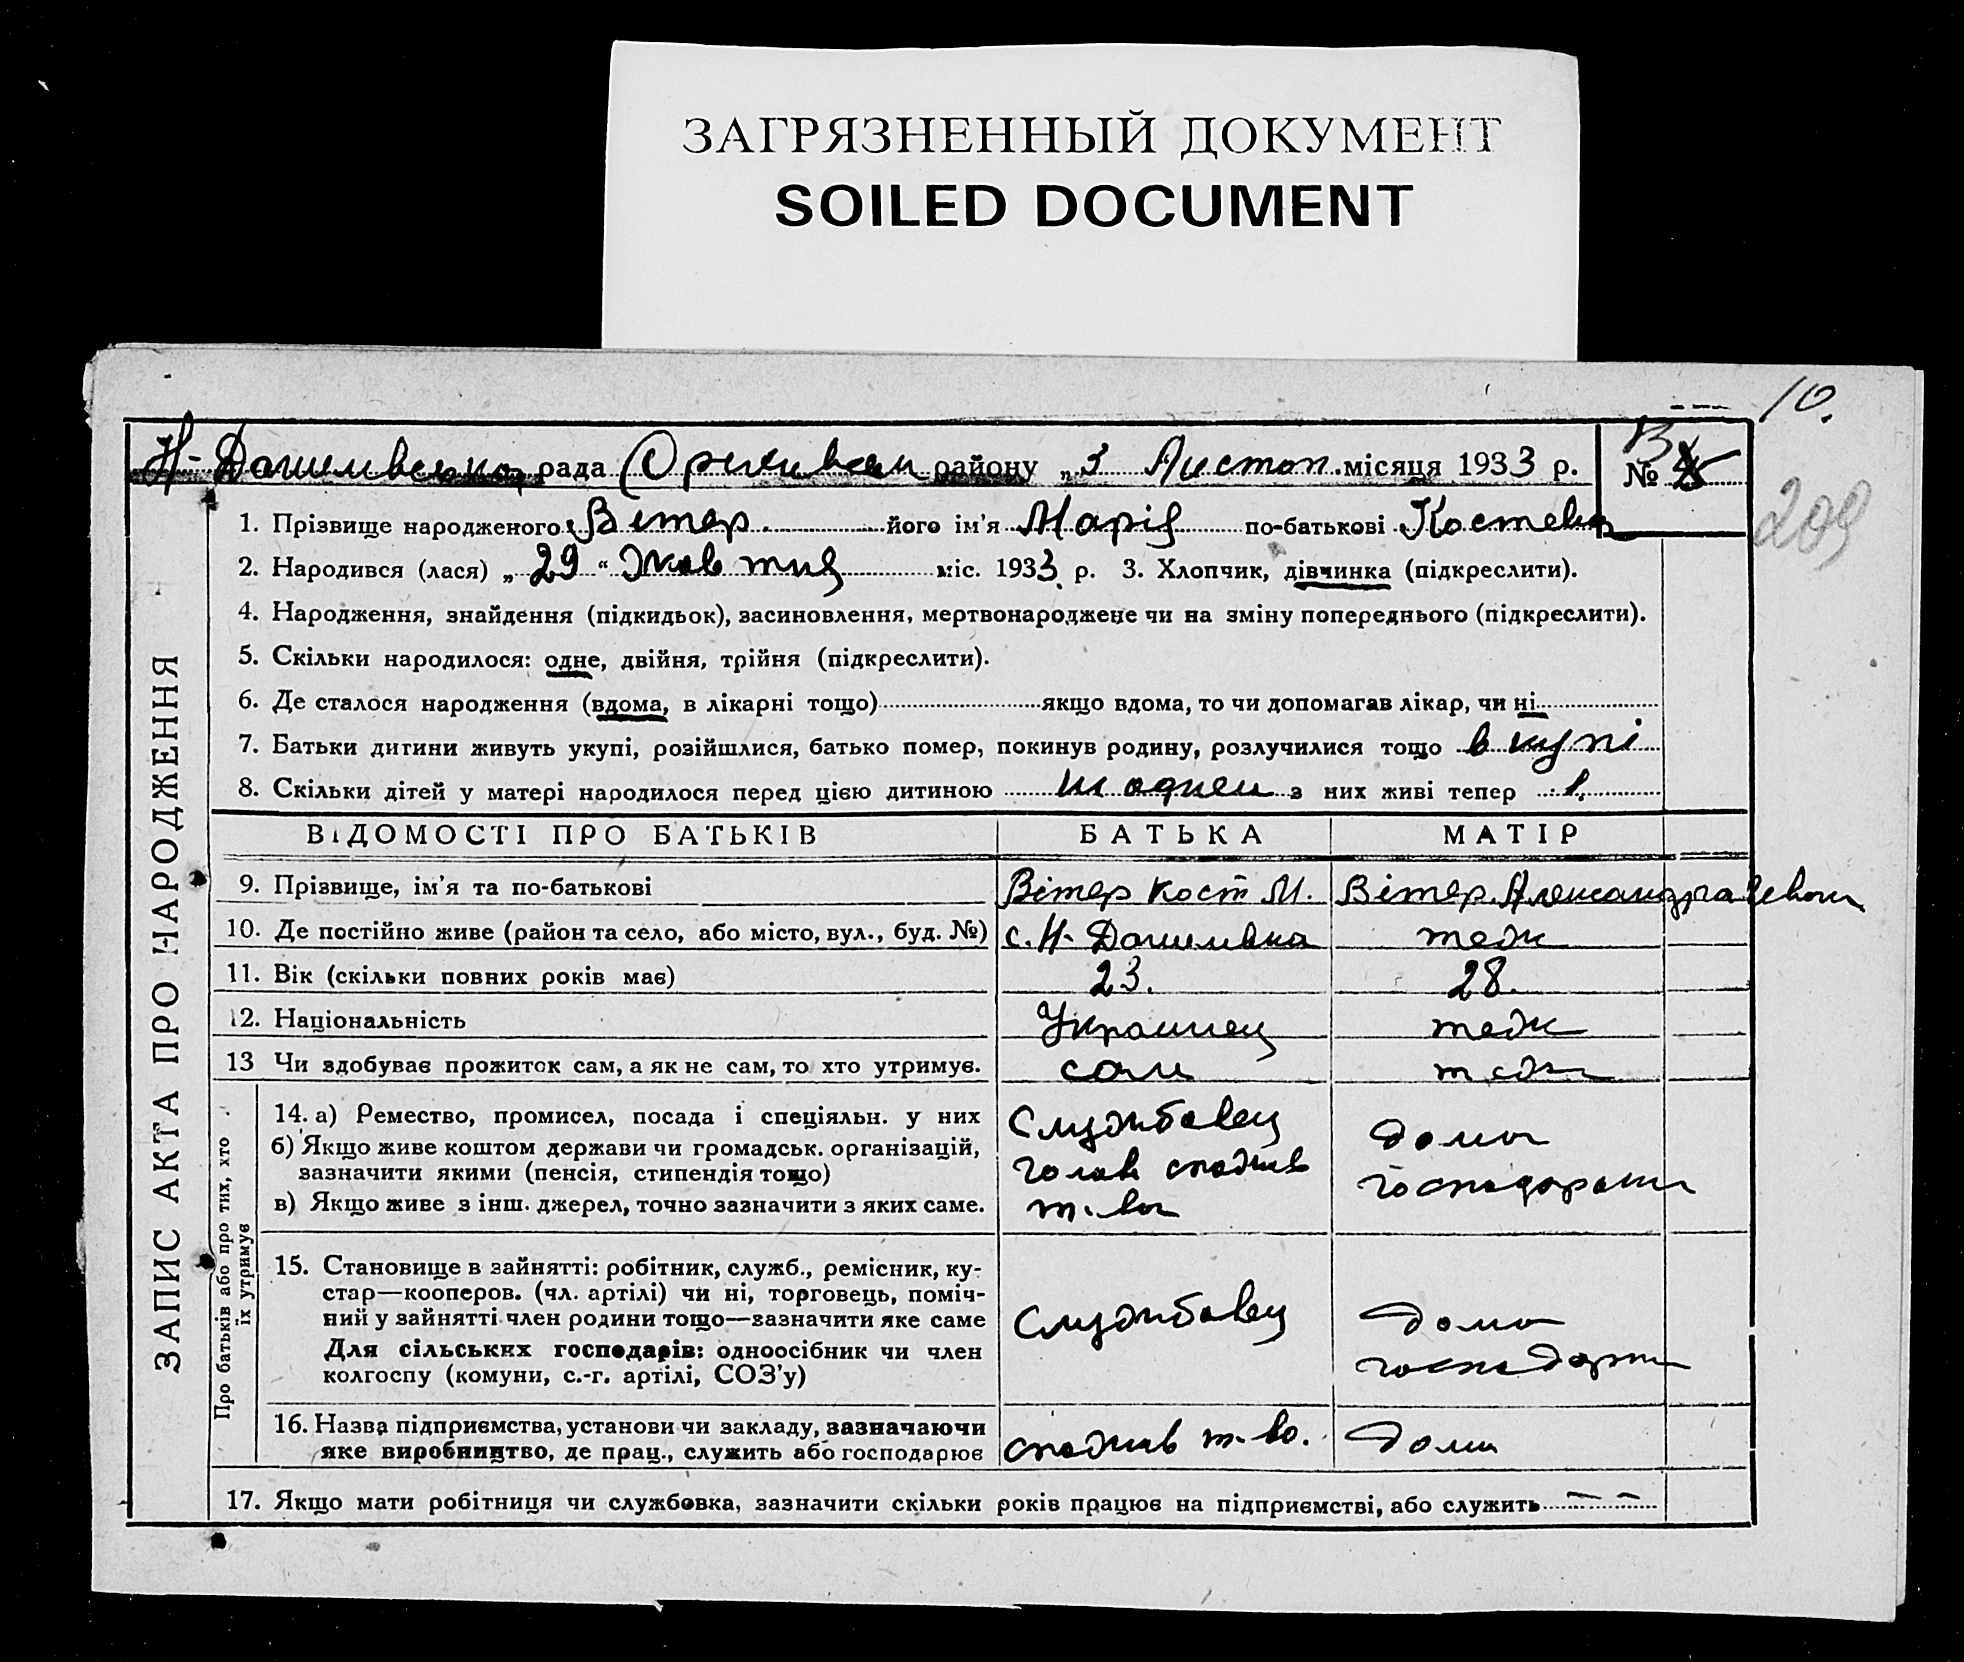 ЗАГРЯЗНЕННЫЙ ДОКУМЕНТ
SOILED DOCUMENT
10.
рада району „ 3 Листоп. місяця 1933 р. №
209
1. Прізвище народженого Вітер його ім'я Марія по-батькові
2. Народився (лася) „ 29 “ Жовтня міс. 1933 р. 3. Хлопчик, дівчинка (підкреслити).
4. Народження, знайдення (підкидьок), засиновлення, мертвонароджене чи на зміну попереднього (підкреслити).
5. Скільки народилося: одне, двійня, трійня (підкреслити).
6. Де сталося народження (вдома, в лікарні тощо) якщо вдома, то чи допомагав лікар, чи ні
7. Батьки дитини живуть укупі, розійшлися, батько помер, покинув родину, розлучилися тощо вкупі
8. Скільки дітей у матері народилося перед цією дитиною з них живі тепер 1.
ЗАПИС АКТА ПРО НАРОДЖЕННЯ
ВІДОМОСТІ ПРО БАТЬКІВ БАТЬКА МАТІР
9. Прізвище, ім'я та по-батькові Вітер Кост М. Вітер Александра
10. Де постійно живе (район та село, або місто, вул., буд. №) с. Н-Дашилівка тедж
11. Вік (скільки повних років має) 23. 28.
12. Національність Украінец тедж
13 Чи здобуває прожиток сам, а як не сам, то хто утримує. сам тедж
Про батьків або про тих, хто їх утримує
14. а) Ремество, промисел, посада і спеціяльн. у них Службовец дома
б) Якщо живе коштом держави чи громадськ. організацій,
зазначити якими (пенсія, стипендія тощо) голов спожив
в) Якщо живе з інш. джерел, точно зазначити з яких саме. т-ва
15. Становище в зайнятті: робітник, служб., ремісник, ку-
стар—кооперов. (чл. артілі) чи ні, торговець, поміч-
ний у зайнятті член родини тощо—зазначити яке саме Службовец дома
Для сільських господарів: одноосібник чи член
колгоспу (комуни, с.-г. артілі, СОЗ'у)
16. Назва підприємства, установи чи закладу, зазначаючи
яке виробництво, де прац., служить або господарює спожив т-во. дома
17. Якщо мати робітниця чи службовка, зазначити скільки років працює на підприємстві, або служить — —